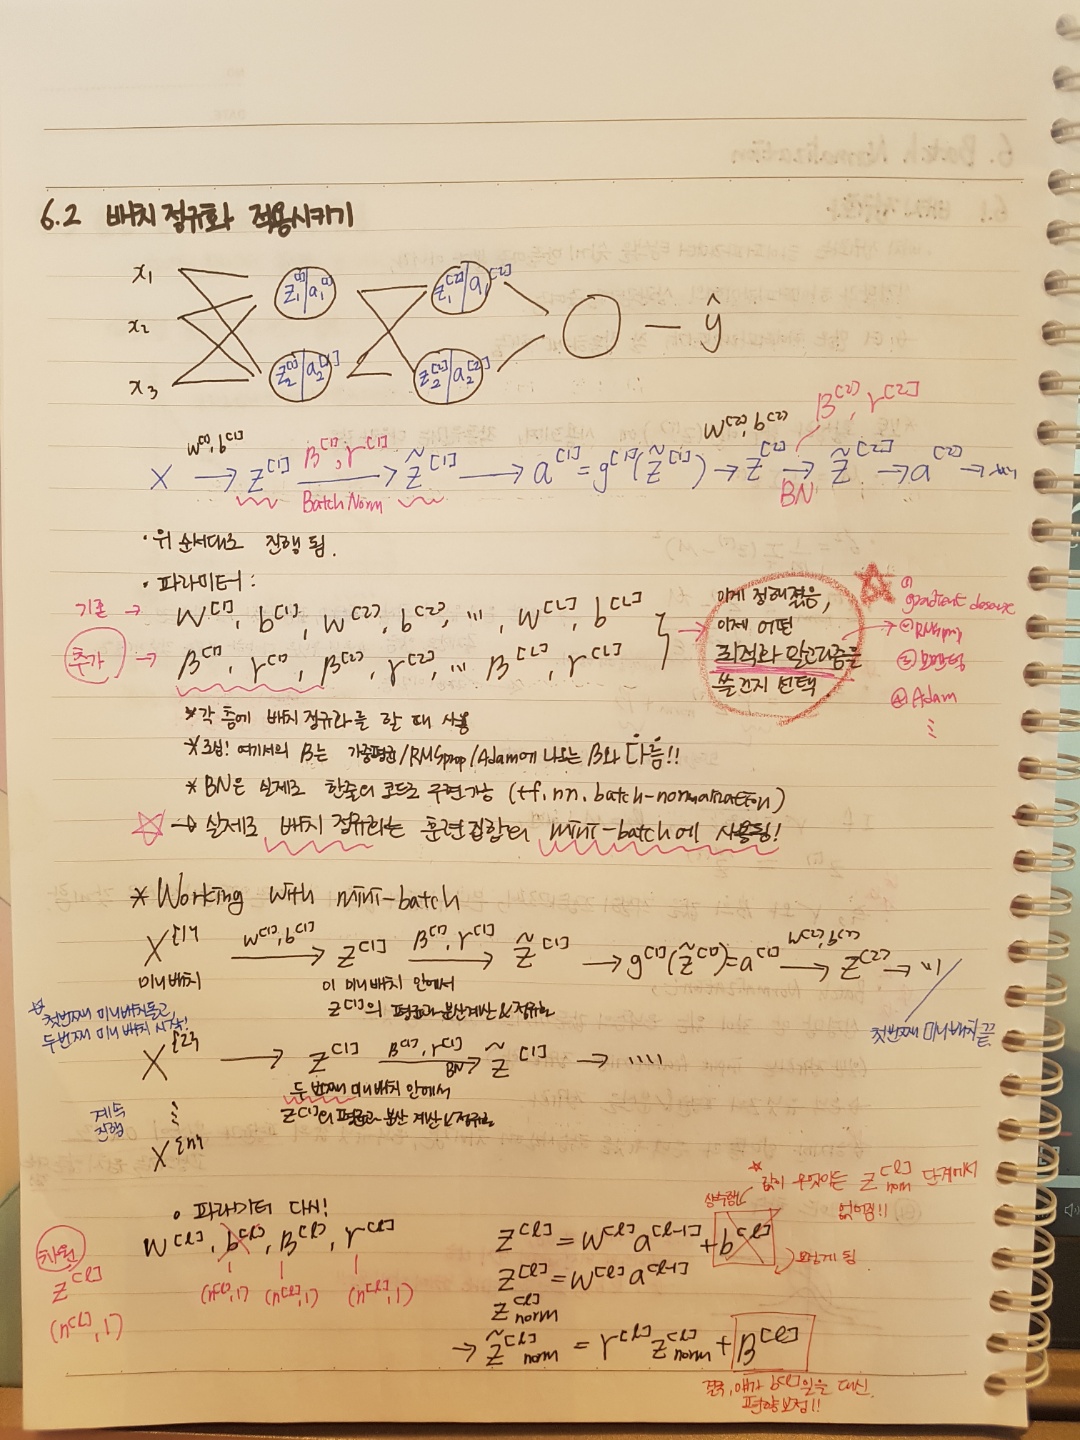 6.2 배치 정규화 적용시키기
x₁
x₂
x₃
z₁^[1] | a₁^[1]
z₂^[1] | a₂^[1]
z₁^[2] | a₁^[2]
z₂^[2] | a₂^[2]
ŷ
X → (w^[1], b^[1]) z^[1] → (β^[1], γ^[1] Batch Norm) z̃^[1] → a^[1] = g^[1](z̃^[1]) → (w^[2], b^[2]) z^[2] → (β^[2], γ^[2] BN) z̃^[2] → a^[2] → ...
· 위 순서대로 진행 됨.
· 파라미터 :
기존 → w^[1], b^[1], w^[2], b^[2], ... w^[L], b^[L]
추가 → β^[1], γ^[1], β^[2], γ^[2], ... β^[L], γ^[L]
이게 정해졌음,
이제 어떤
최적화 알고리즘을
쓸건지 선택
①
gradient
② RMSprop
③ 모멘텀
④ Adam
⋮
*각 층에 배치 정규화를 할 때 사용
*조심! 여기서의 β는 가중평균/RMSprop/Adam에 나오는 β와 다름!!
* BN은 실제로 한줄의 코드로 구현가능 (tf.nn.batch-normalization)
☆ → 실제로 배치 정규화는 훈련집합의 mini-batch에 사용됨!
* Working with mini-batch
X^{1} → (w^[1], b^[1]) z^[1] → (β^[1], γ^[1]) z̃^[1] → g^[1](z̃^[1]) = a^[1] → (w^[2], b^[2]) z^[2] → ...
미니배치
이 미니배치 안에서
z^[1]의 평균과 분산계산 & 정규화
첫번째 미니배치 끝
첫번째 미니배치돌고,
두번째 미니배치 시작!
X^{2} → z^[1] → (β^[1], γ^[1] BN) z̃^[1] → ....
두번째 미니배치 안에서
z^[1]의 평균과 분산 계산 & 정규화
계속
진행
⋮
X^{m}
◦ 파라미터 다시!
w^[l], b^[l], β^[l], γ^[l]
(n^[l], 1) (n^[l], 1) (n^[l], 1)
차원
z^[l]
(n^[l], 1)
상수랩
* 값이 무엇이든 z^[l]norm 단계에서
없어짐!!
z^[l] = w^[l] a^[l-1] + b^[l]
없게 됨
z^[l] = w^[l] a^[l-1]
z^[l]norm
→ z̃^[l]norm = γ^[l] z^[l]norm + β^[l]
결국, 얘가 b^[l] 일을 대신.
편향보정!!